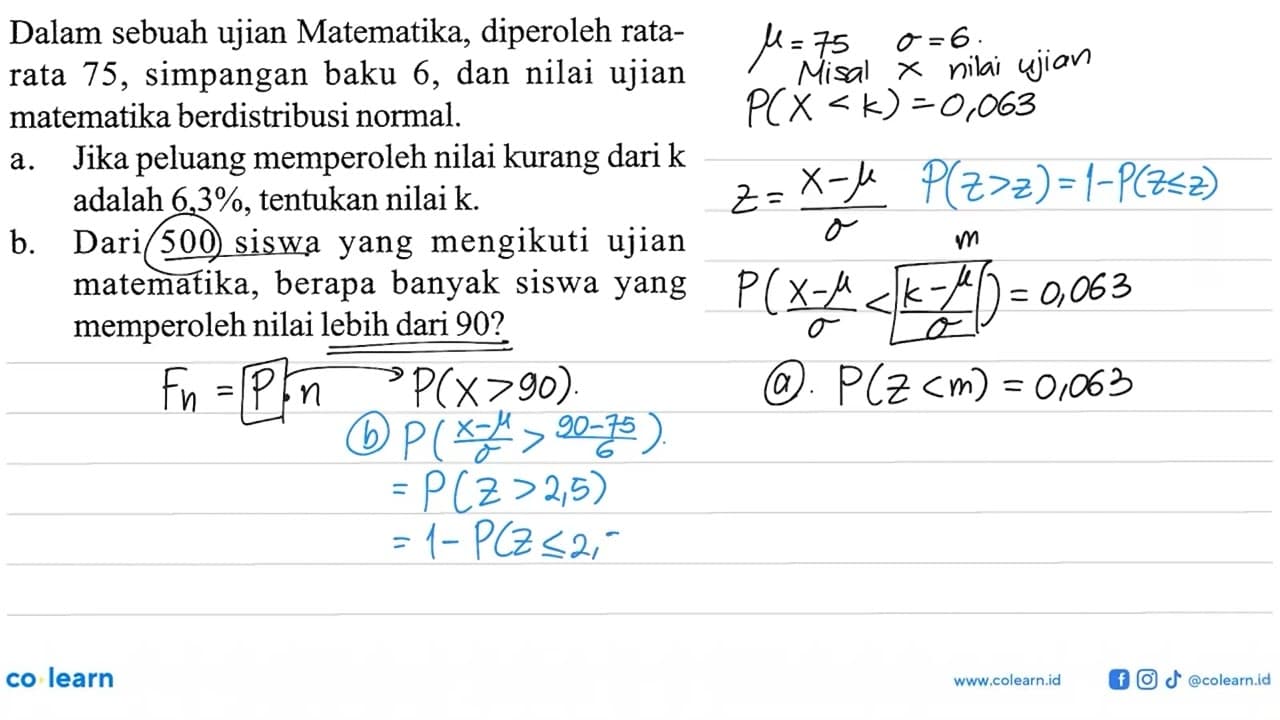 Dalam sebuah ujian Matematika, diperoleh rata-
rata 75, simpangan baku 6, dan nilai ujian
matematika berdistribusi normal.
a. Jika peluang memperoleh nilai kurang dari k
adalah 6,3%, tentukan nilai k.
b. Dari 500 siswa yang mengikuti ujian
matematika, berapa banyak siswa yang
memperoleh nilai lebih dari 90?
Fn = P . n → P(X > 90).
(b) P((x-μ)/σ > (90-75)/6).
= P(Z > 2,5)
= 1 - P(Z ≤ 2,
μ = 75 σ = 6.
Misal x nilai ujian
P(X < k) = 0,063
z = (x-μ)/σ P(Z>z) = 1-P(Z≤z)
m
P((x-μ)/σ < (k-μ)/σ) = 0,063
(a). P(Z < m) = 0,063
co learn
www.colearn.id
@colearn.id